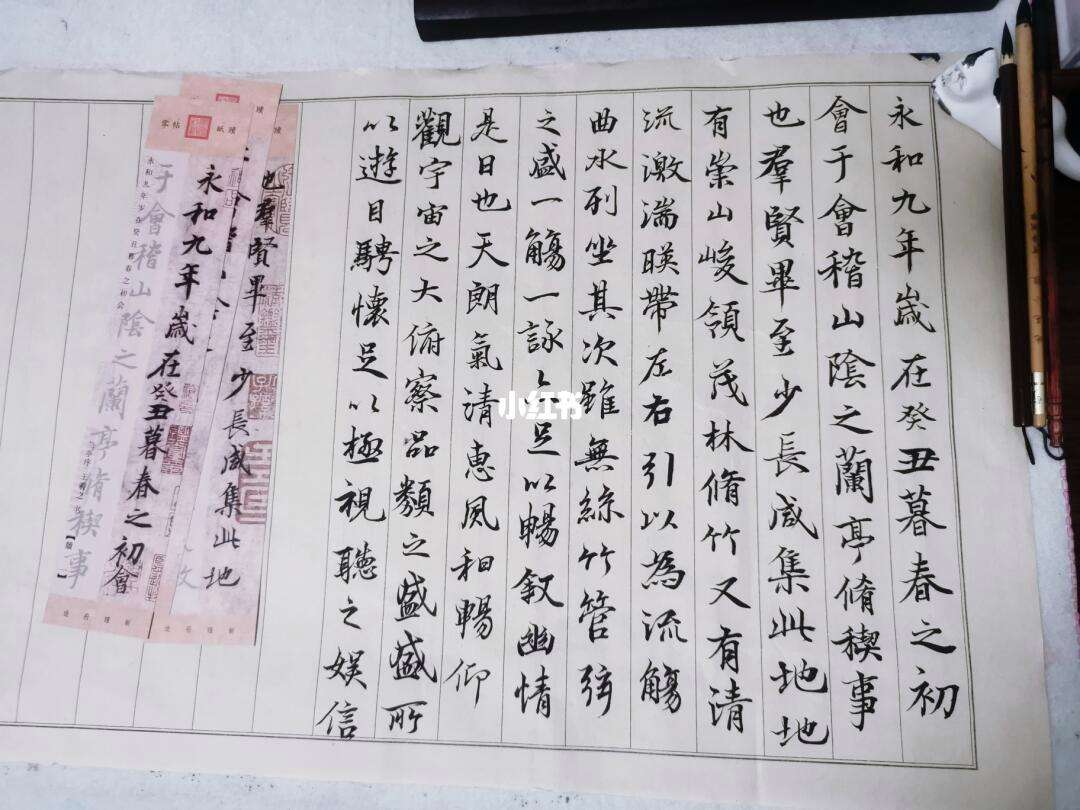 永和九年歲在癸丑暮春之初
會于會稽山陰之蘭亭脩稧事
也羣賢畢至少長咸集此地地
有崇山峻領茂林脩竹又有清
流激湍暎帶左右引以為流觴
曲水列坐其次雖無絲竹管弦
之盛一觴一詠足以暢叙幽情
是日也天朗氣清惠風和暢仰
觀宇宙之大俯察品類之盛盛所
以遊目騁懷足以極視聽之娛信
也羣賢畢至少長咸集此地
永和九年歲在癸丑暮春之初會
于會稽山陰之蘭亭脩稧事
小红书